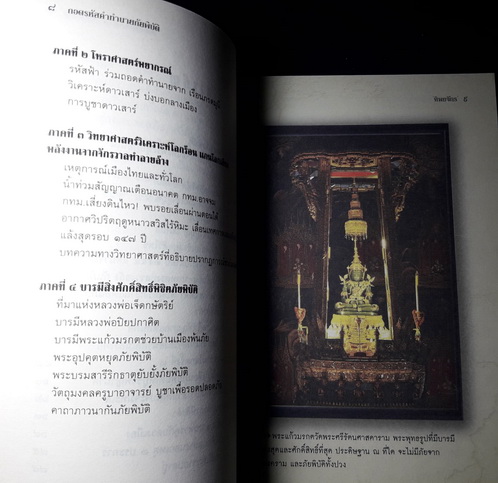 ๘ ถอดรหัสคำทำนายภัยพิบัติ
ภาคที่ ๒ โหราศาสตร์พยากรณ์
รหัสฟ้า ร่วมถอดคำทำนายจาก
วิเคราะห์ดาวเสาร์ บ่งบอกลางเมือง
การบูชาดาวเสาร์
ภาคที่ ๓ วิทยาศาสตร์วิเคราะห์โลกร้อน
พลังงานจากจักรวาลทำลายล้าง
เหตุการณ์เมืองไทยและทั่วโลก
น้ำท่วมสัญญาณเตือนอนาคต กทม.อาจจม
กทม.เสี่ยงดินไหว! พบรอยเลื่อนผ่านตอนใต้
อากาศวิปริตฤดูหนาวสวิสไร้หิมะ
แล้งสุดรอบ ๑๔๗ ปี
บทความทางวิทยาศาสตร์ที่อธิบาย
ภาคที่ ๔ บารมีสิ่งศักดิ์สิทธิ์พิชิตภัยพิบัติ
ที่มาแห่งหลวงพ่อเจ็ดกษัตริย์
บารมีหลวงพ่อปิยปกาศิต
บารมีพระแก้วมรกตช่วยบ้านเมืองพ้นภัย
พระอุปคุตหยุดภัยพิบัติ
พระบรมสารีริกธาตุยับยั้งภัยพิบัติ
วัตถุมงคลครูบาอาจารย์ บูชาเพื่อรอดปลอดภัย
คาถาภาวนากันภัยพิบัติ
๙
พระแก้วมรกตวัดพระศรีรัตนศาสดาราม พระพุทธรูปที่มีบารมี
สุดและศักดิ์สิทธิ์ที่สุด ประดิษฐาน ณ ที่ใด จะไม่มีภัยจาก
คราม และภัยพิบัติทั้งปวง